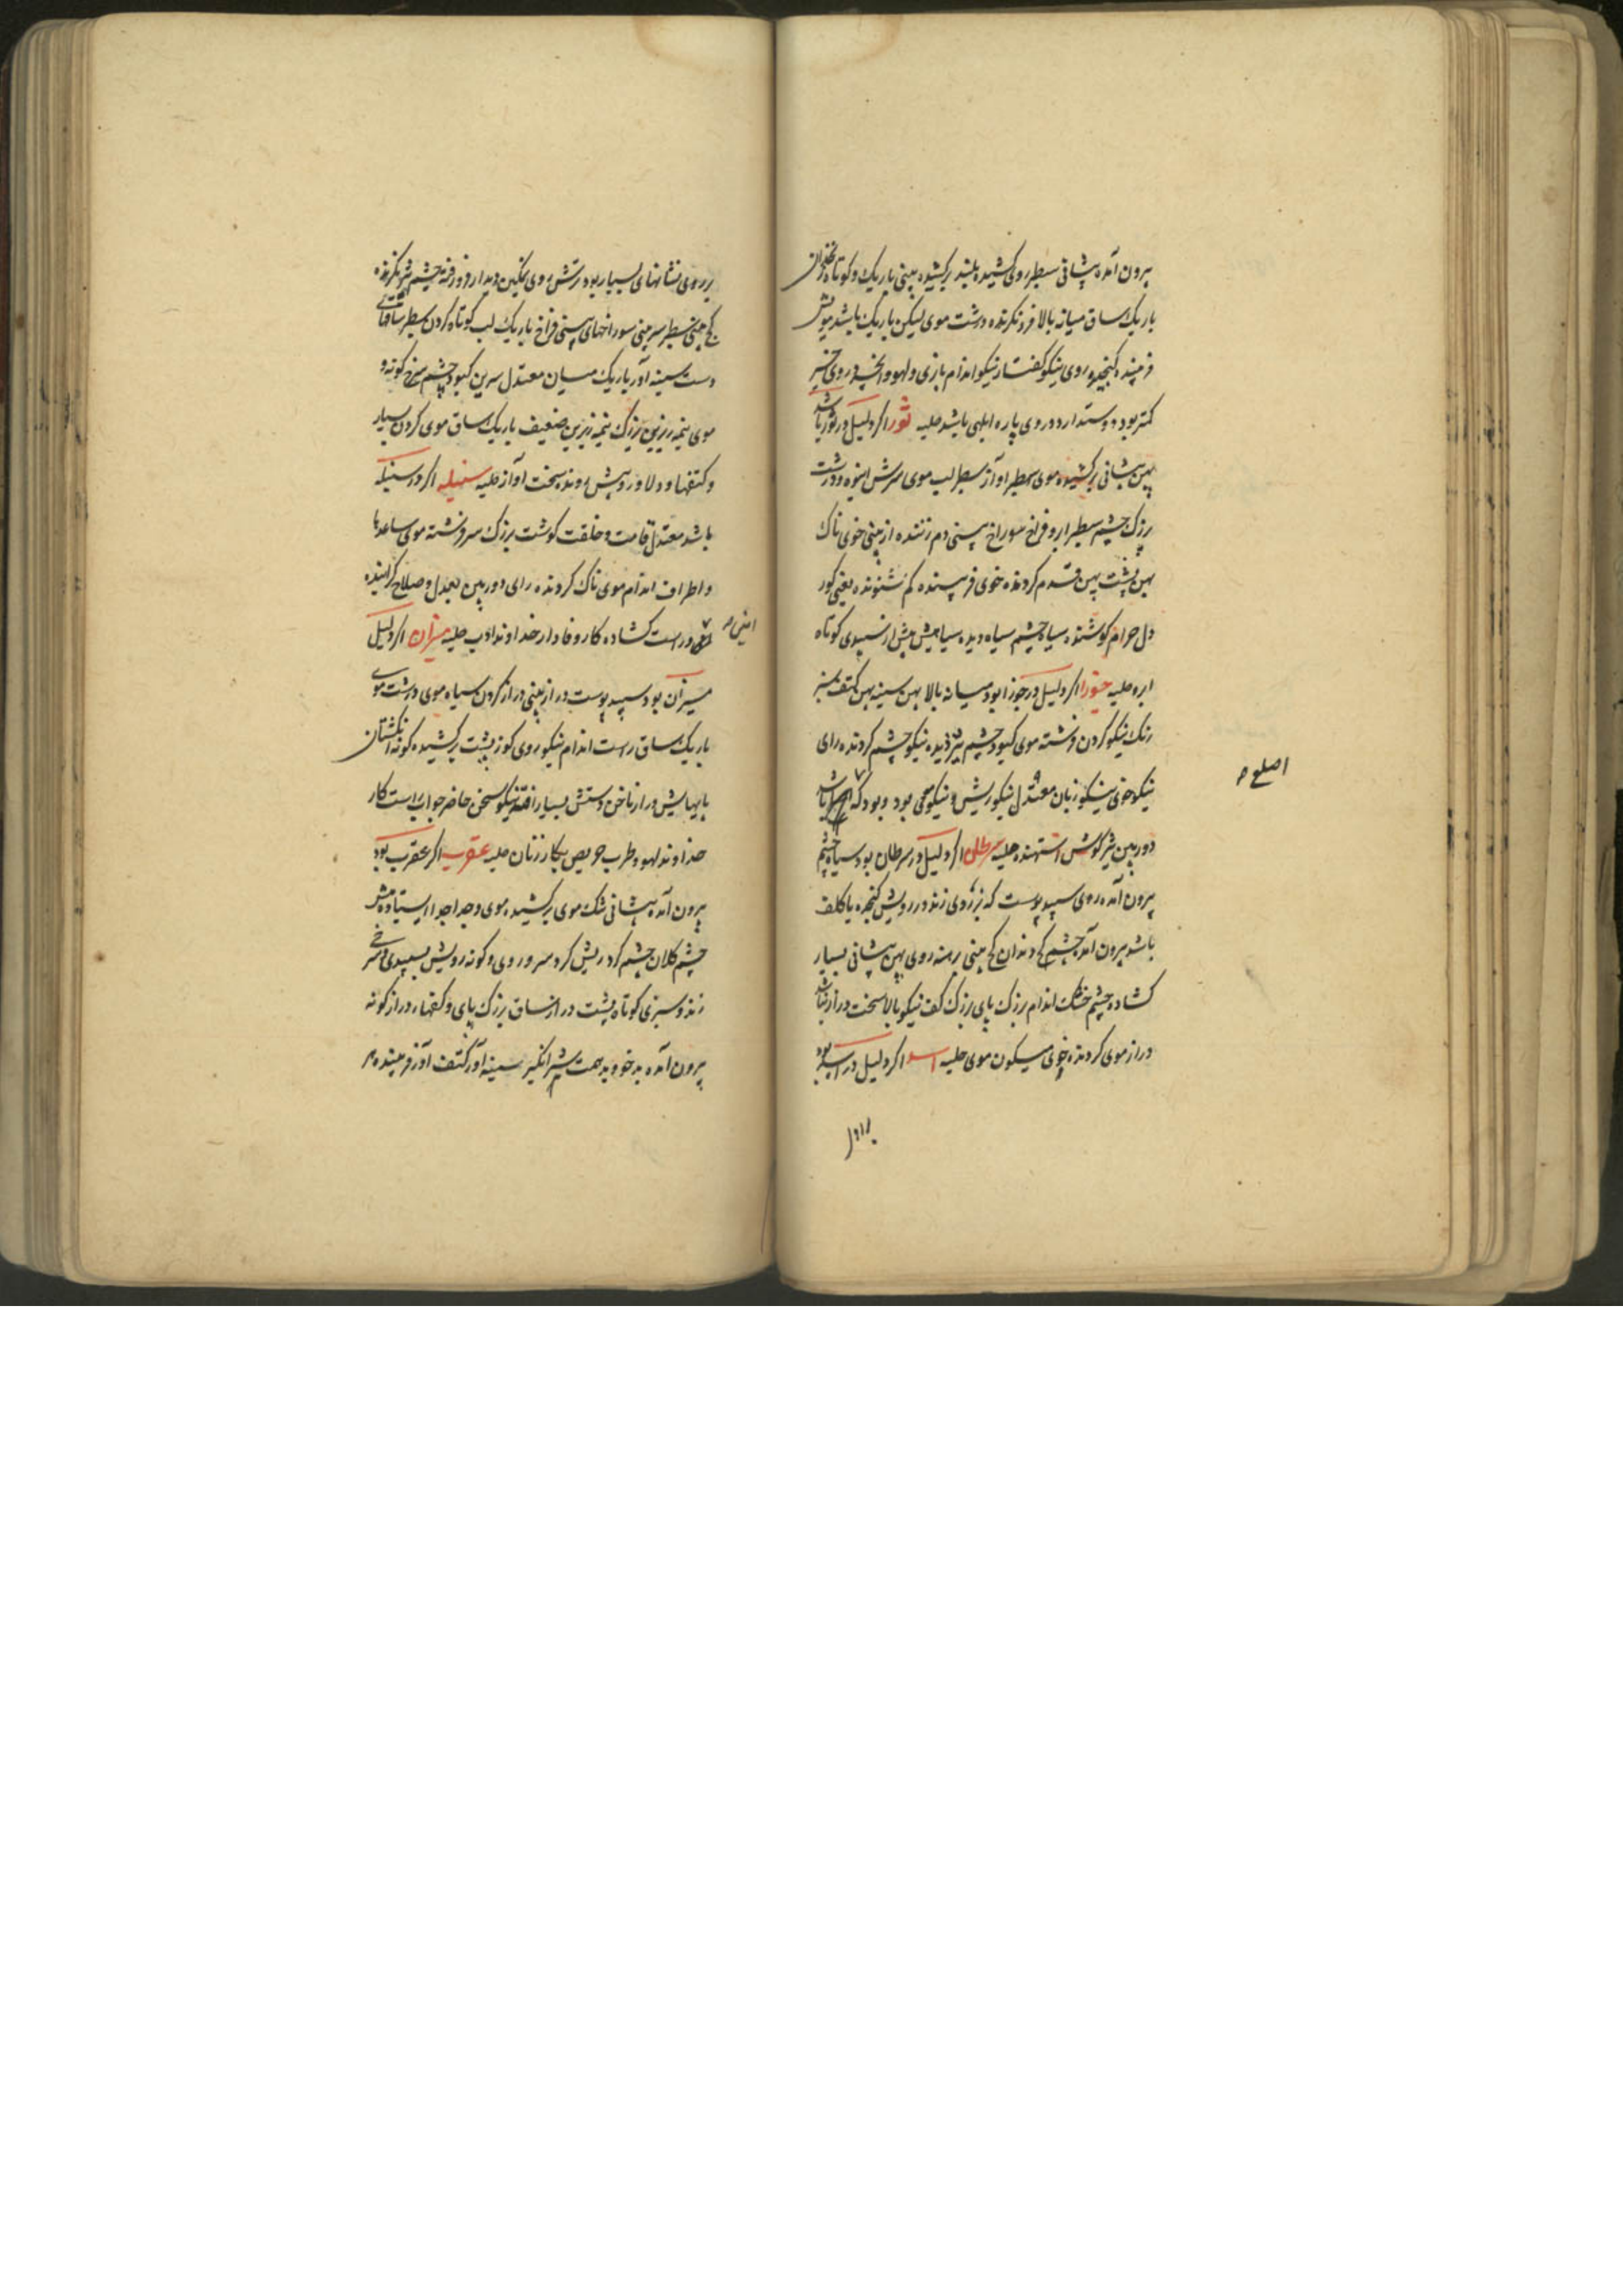 بیرون آمده پیشانی سطبر روی کشیده بلند برکشیده بینی باریک و کوتاه زنخدان
باریک ساق میانه بالا فرونکرنده درشت موی لیکن باریک باشد مویش
فریبنده روی نیکو گفتار نیکو اندام بازی و لهو و
کمتر بود و دوستدارد و روی پاره ابلهی باشد حلیه ثور اگر دلیل در ثور باشد
پهن پیشانی برکشیده موی سطبر آواز سطبر لب موی سرش انبوه و درشت
بزرک چشم سطبر ابرو فراخ سوراخ بینی دم زننده از بینی خوی ناک
پهن پشت پهن قدم کردنده خوی فریبنده کم شنونده یعنی کور
دل حرام کوشنده سیاه چشم سیاه دیده سیاهیش بیش از سپیدی کوتاه
ابره حلیه جوزا اگر دلیل در جوزا بود میانه بالا پهن سینه پهن کتف سبز
رنک نیکو کردن فرشته موی کبود چشم تیز دیده نیکو چشم کردنده رای
نیکو خوی نیکو زبان معتدل نیکو ریش و نیکو موی بود و بود که باشد
اصلع
دوربین تیز کوش استهنده حلیه سرطان اگر دلیل در سرطان بود سیاه چشم
بیرون آمده روی سپید پوست که بزردی زند در رویش کنجده یا کلف
باشد بیرون آمده چشم کج دندان کج بینی برهنه روی پهن پیشانی بسیار
کشاده چشم خشک اندام بزرک پای بزرک کف نیکو بالا سخت دراز نباشد
دراز موی کردنده خوی میکون موی حلیه اسد اگر دلیل در اسد بود
بر روی
بر روی نشانهای بسیار بود ترش روی نمکین دیدار فرورفته چشم
کج بینی سطبر سر بینی سوراخهای بینی فراخ باریک لب کوتاه کردن سطبر ساقهای
دست سینه آور باریک میان معتدل سرین کبود چشم سرخ کونه و
موی نیمه زبرین بزرک نیمه زیرین ضعیف باریک ساق موی کردن بسیار
و کتفها و دلاور و پیش رونده سخت آواز حلیه سنبله اگر در سنبله
باشد معتدل قامت و خلقت کوشت بزرک سر فرشته موی ساعدها
و اطراف اندام موی ناک کردنده رای دوربین بعدل و صلاح کراینده
امین
و راست کشاده کار وفادار خداوند ادب حلیه میزان اگر دلیل
میزان بود سپید پوست دراز بینی دراز کردن سیاه موی درشت موی
باریک ساق راست اندام نیکو روی کوز پشت برکشیده کونه انکشتان
پایهایش دراز ناخن دستش بسیار نیکو سخن حاضر جواب راست کار
خداوند لهو و طرب حریص بکار زنان حلیه عقرب اگر عقرب بود
بیرون آمده پیشانی تنک موی برکشیده موی و جدا جدا ایستاده میش
چشم کلان چشم کرد ریش کرد سر و روی و کونه رویش بسپیدی و سرخی
زند و سبزی کوتاه پشت دراز ساق بزرک پای و کفها دراز کونه
بیرون آمده بدخو بدهمت شر انکیز سینه آور کتف آور فریبنده